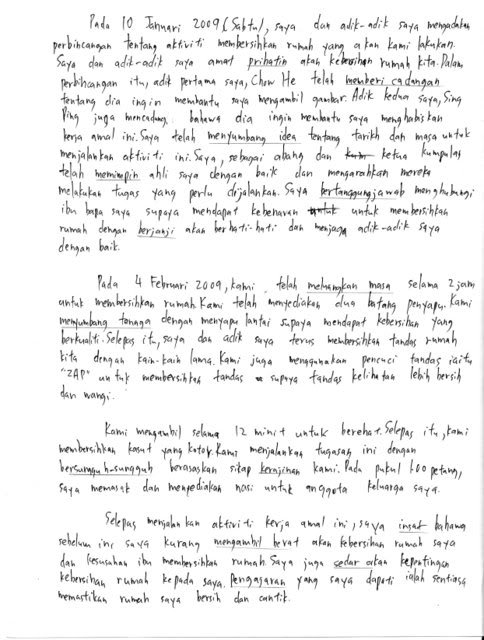 Pada 10 Januari 2009 (Sabtu), saya dan adik-adik saya mengadakan
perbincangan tentang aktiviti membersihkan rumah yang akan kami lakukan.
Saya dan adik-adik saya amat prihatin akan kebersihan rumah kita. Dalam
perbincangan itu, adik pertama saya, Chow He telah memberi cadangan
tentang dia ingin membantu saya mengambil gambar. Adik kedua saya, Sing
Ping juga mencadang bahawa dia ingin membantu saya menghabiskan
kerja amal ini. Saya telah menyumbang idea tentang tarikh dan masa untuk
menjalankan aktiviti ini. Saya, sebagai abang dan ketua kumpulan
telah memimpin ahli saya dengan baik dan mengarahkan mereka
melakukan tugas yang perlu dijalankan. Saya bertanggungjawab menghubungi
ibu bapa saya supaya mendapat kebenaran untuk untuk membersihkan
rumah dengan berjanji akan berhati-hati dan menjaga adik-adik saya
dengan baik.
Pada 4 Februari 2009, kami telah meluangkan masa selama 2 jam
untuk membersihkan rumah. Kami telah menyediakan dua batang penyapu. Kami
menyumbang tenaga dengan menyapu lantai supaya mendapat kebersihan yang
berkualiti. Selepas itu, saya dan adik saya terus membersihkan tandas rumah
kita dengan kain-kain lama. Kami juga menggunakan pencuci tandas iaitu
"ZAP" untuk membersihkan tandas supaya tandas kelihatan lebih bersih
dan wangi.
Kami mengambil selama 12 minit untuk berehat. Selepas itu, kami
membersihkan kasut yang kotor. Kami menjalankan tugasan ini dengan
bersungguh-sungguh berasaskan sikap kerajinan kami. Pada pukul 6.00 petang,
saya memasak dan menyediakan nasi untuk anggota keluarga saya.
Selepas menjalankan aktiviti kerja amal ini, saya insaf bahawa
sebelum ini saya kurang mengambil berat akan kebersihan rumah saya
dan kesusahan ibu membersihkan rumah. Saya juga sedar akan kepentingan
kebersihan rumah kepada saya. Pengajaran yang saya dapati ialah sentiasa
memastikan rumah saya bersih dan cantik.